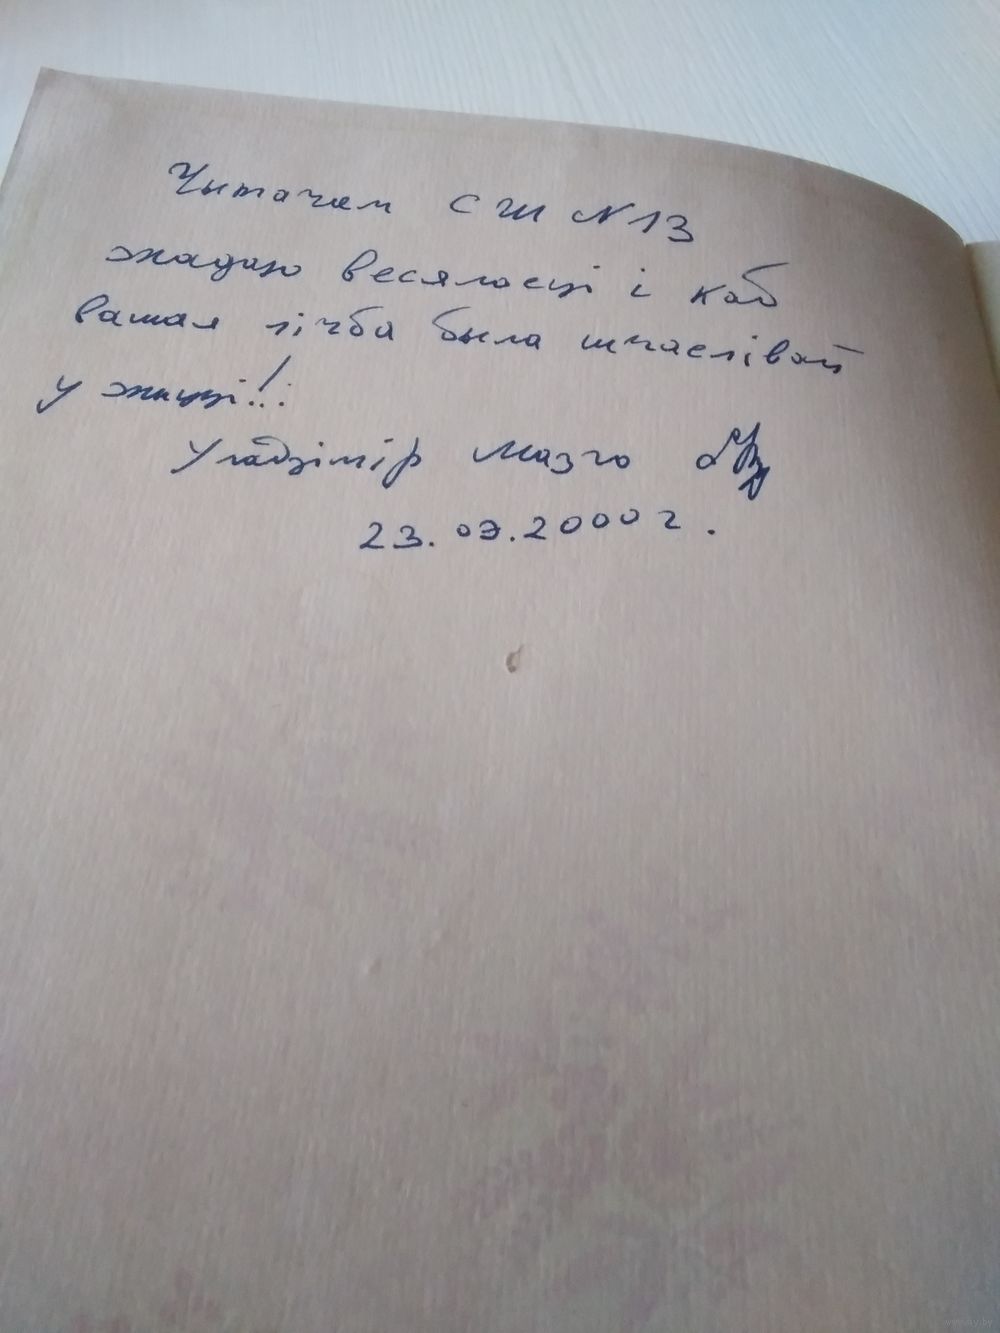 Чытачам СШ N 13
жадаю весялосці і каб
вашая лічба была шчаслівай
у жыцці!..
Уладзімір Мазго
23.03.2000 г.